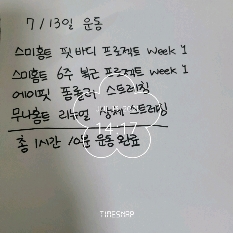 7/13일 운동
스미홈트 핏바디 프로젝트 week 1
스미홈트 6주 복근 프로젝트 week 1
에이핏 폼롤러 스트레칭
무나홈트 리뉴얼 상체 스트레칭
14:17
총 1시간 10분 운동 완료
TIMESTAMP